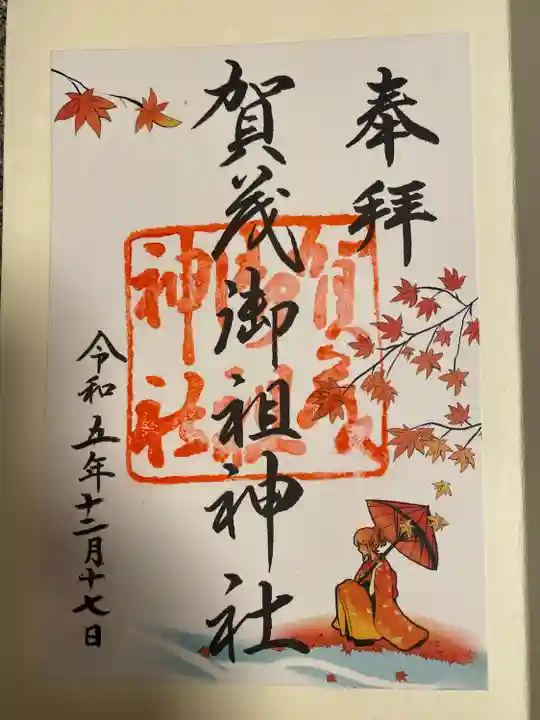 奉拝
賀茂御祖神社
賀茂
御祖
神社
令和五年十二月十七日